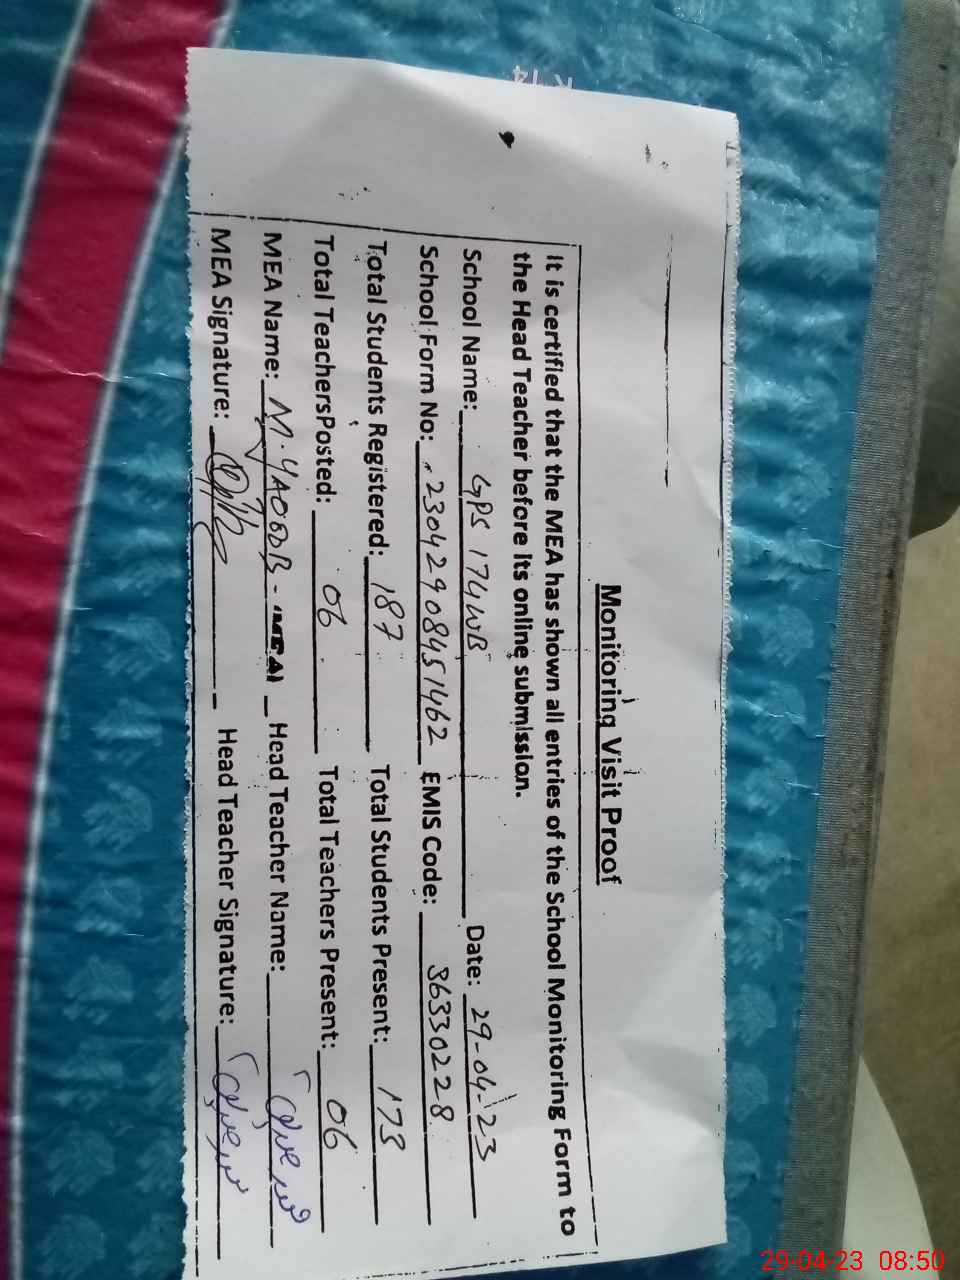 Monitoring Visit Proof
It is certified that the MEA has shown all entries of the School Monitoring Form to
the Head Teacher before its online submission.
School Name: GPS 174WB Date: 29-04-23
School Form No: 23042908451462 EMIS Code: 36330228
Total Students Registered: 187 Total Students Present: 173
Total TeachersPosted: 06 Total Teachers Present: 06
MEA Name: M. YAQOOB - Head Teacher Name:
MEA Signature: Head Teacher Signature:
29-04-23 08:50